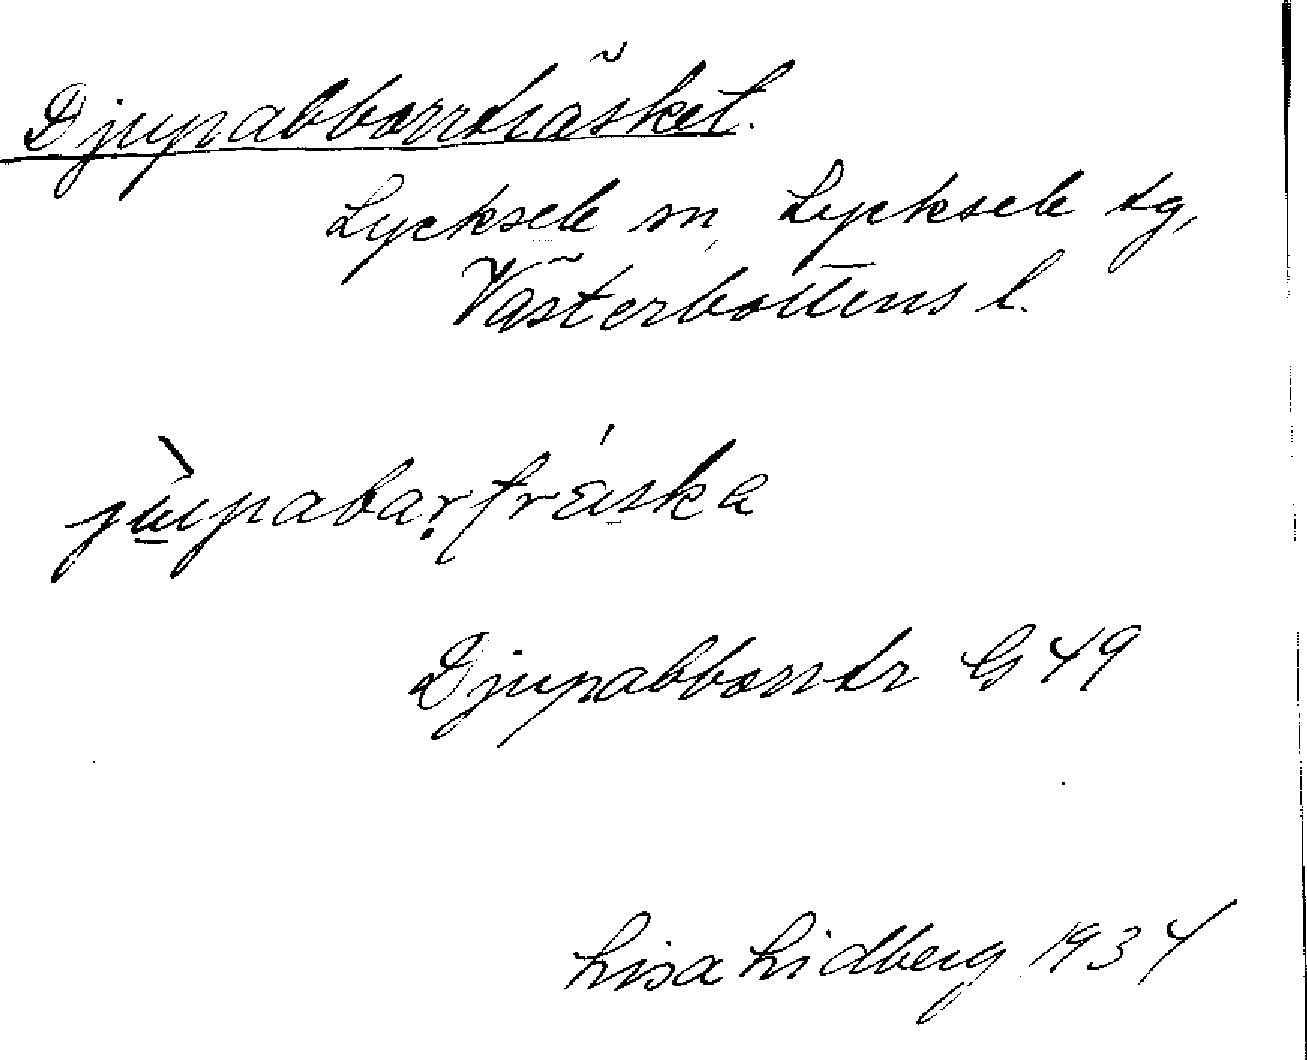 Djupabborrträsket.
Lycksele sn, Lycksele tg,
Västerbottens l.
jùpabarträ́ska
Djupabborrtr G 49
Lisa Lidberg 1934